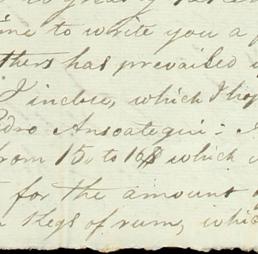 me to write you a
thers has prevailed
I inclose, which I hop
edro Ansoategui: 
from 15 to 16$ which
for the amount
Kegs of rum, whic